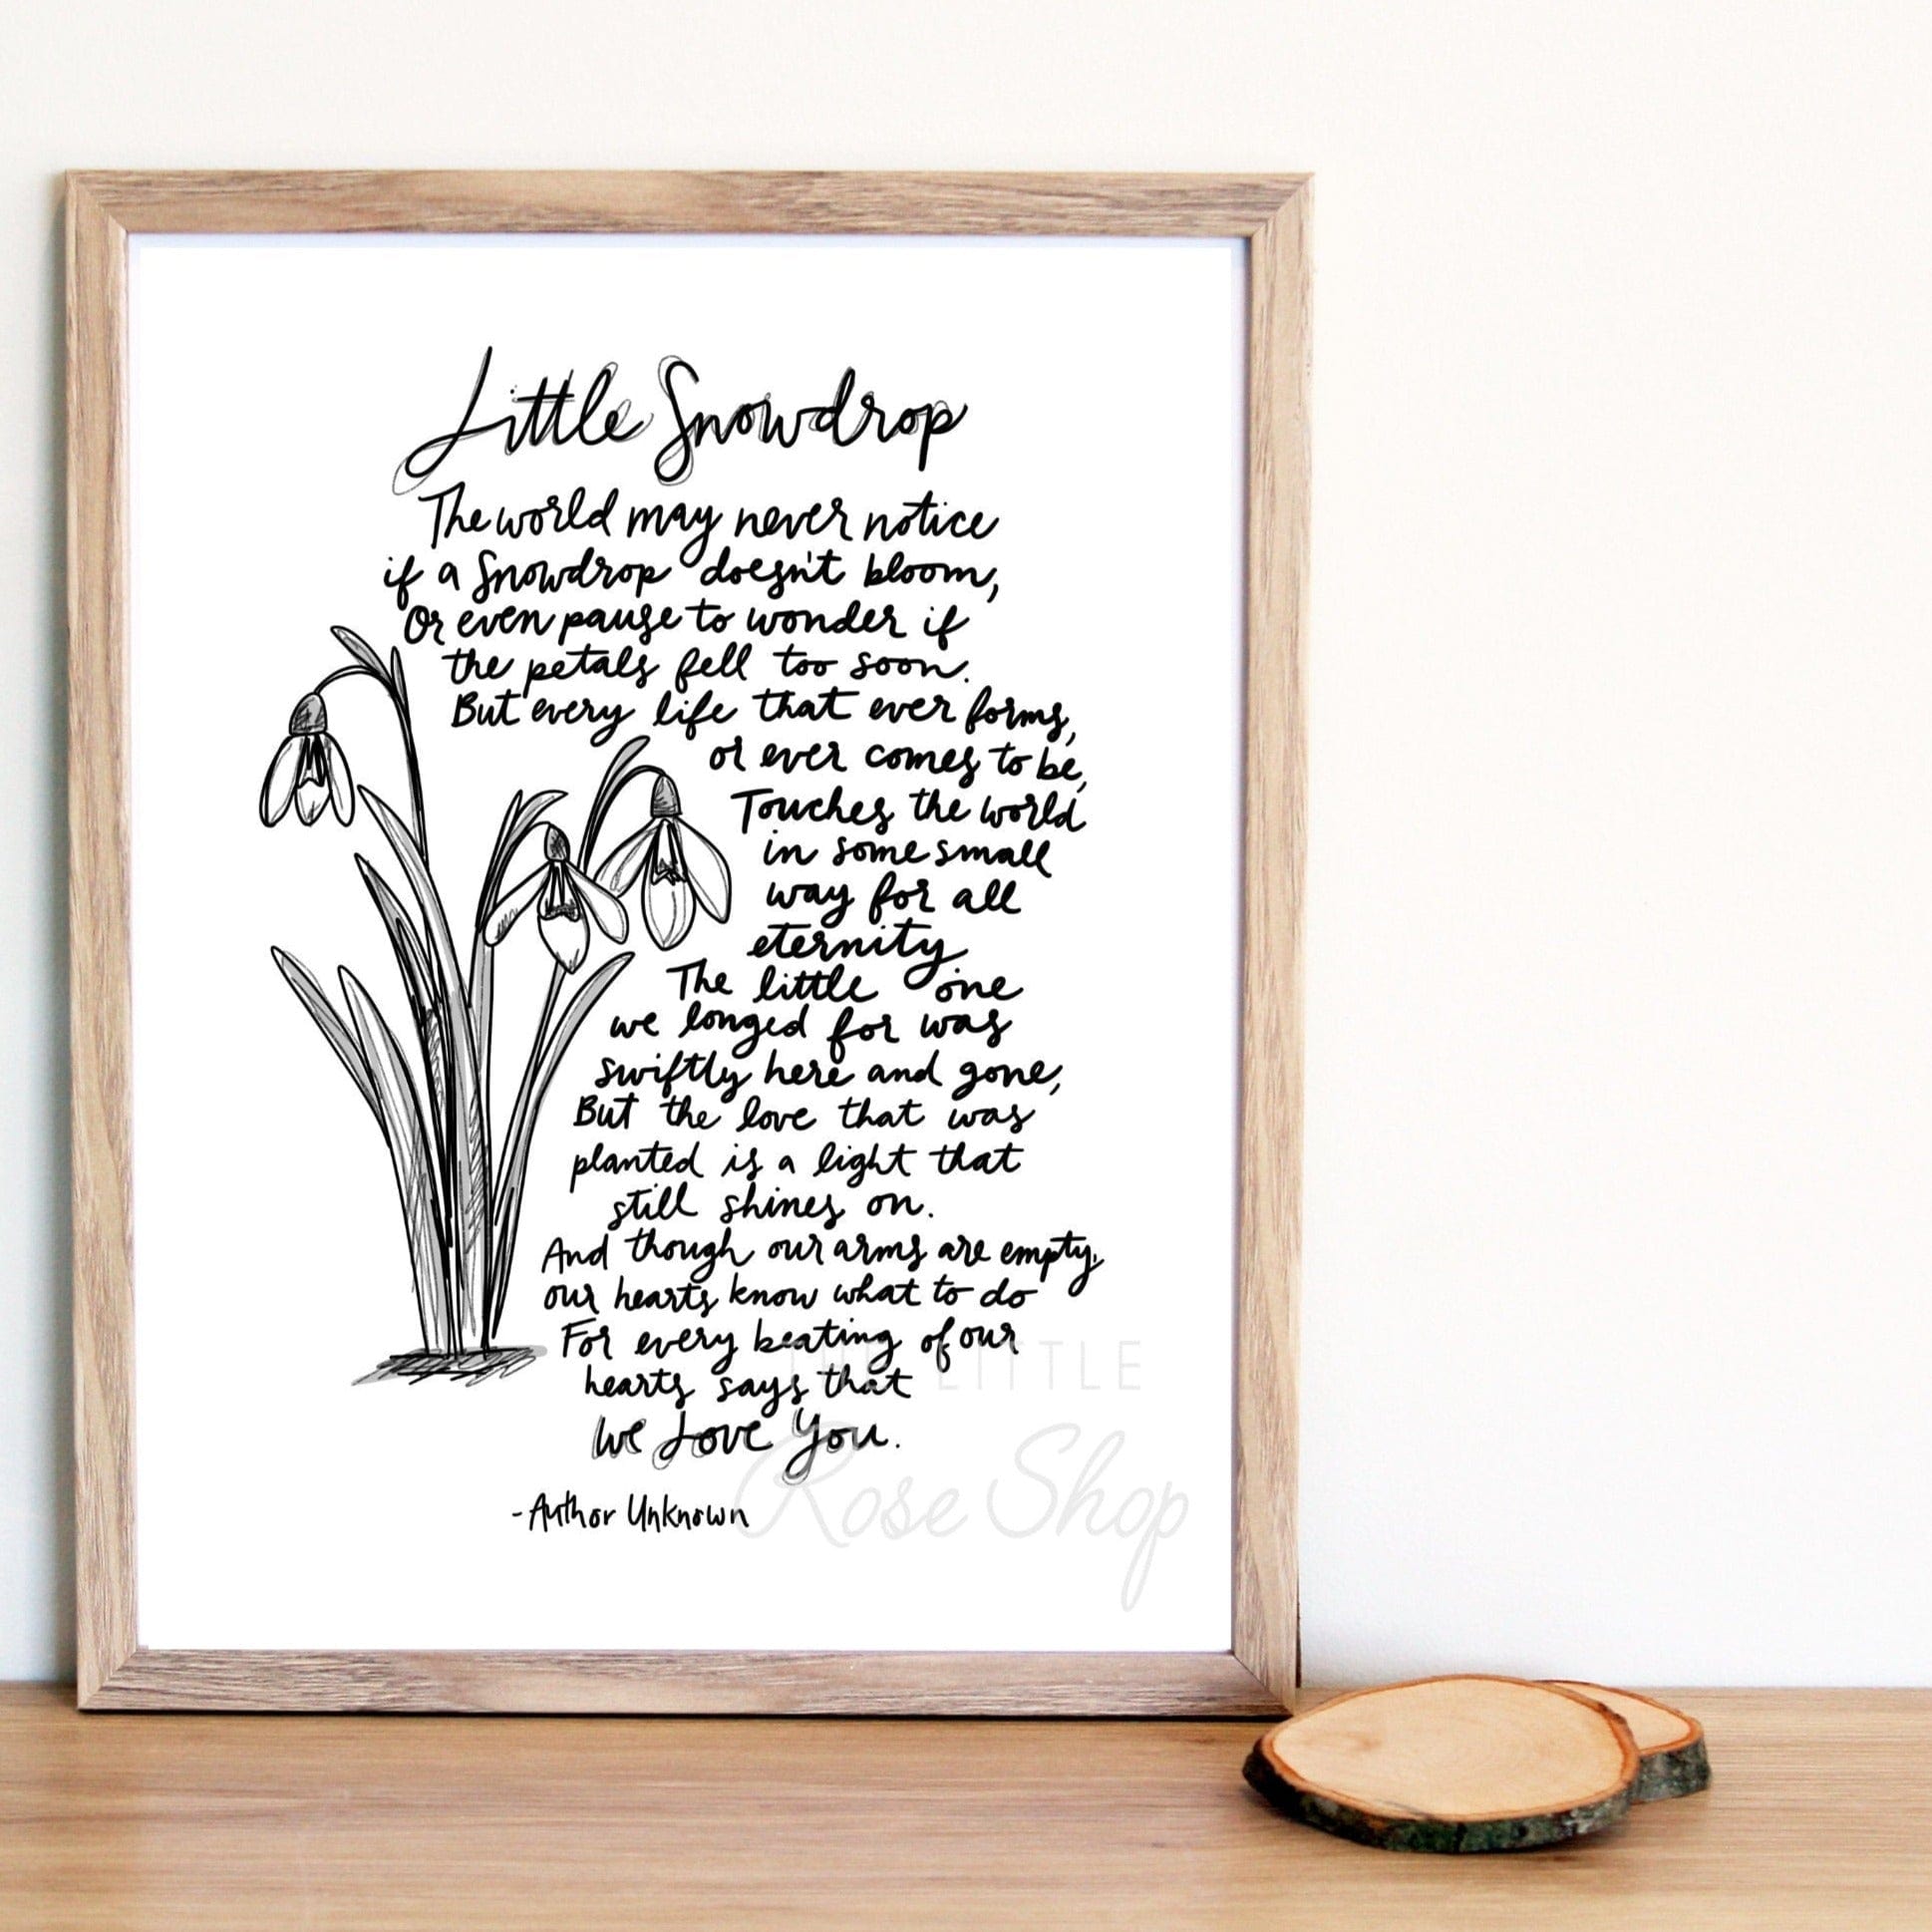 Little Snowdrop
The world may never notice
if a Snowdrop doesn't bloom,
Or even pause to wonder if
the petals fell too soon.
But every life that ever forms,
or ever comes to be,
Touches the world
in some small
way for all
eternity.
The little one
we longed for was
swiftly here and gone,
But the love that was
planted is a light that
still shines on.
And though our arms are empty,
our hearts know what to do
For every beating of our
hearts says that
We Love You.
-Author Unknown
THE LITTLE
Rose Shop